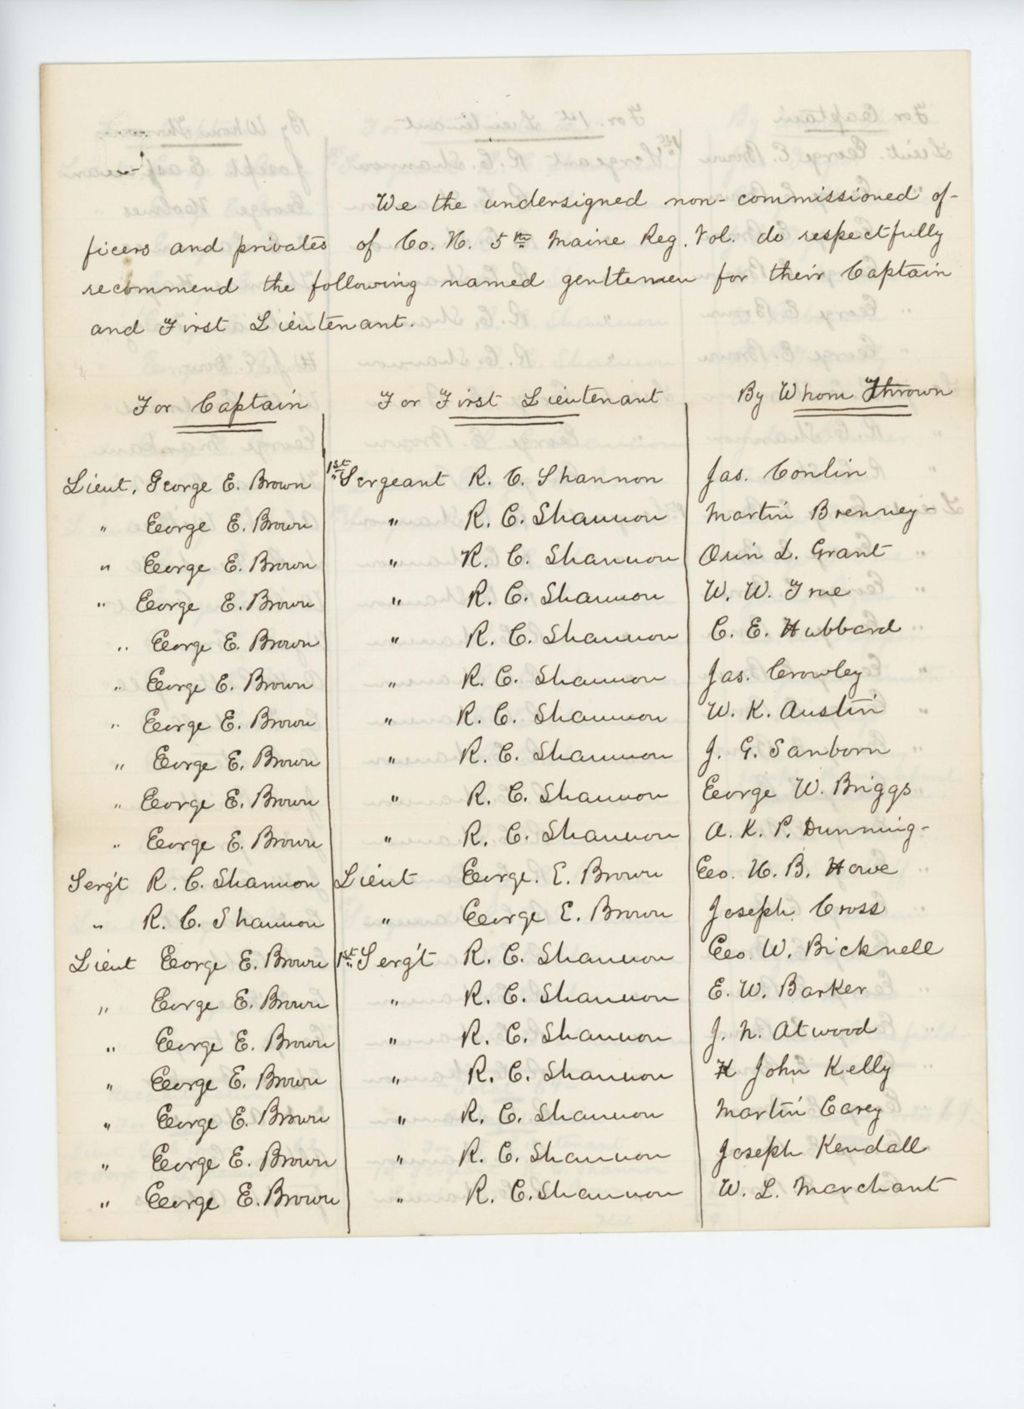 We the undersigned non-commissioned of-
ficers and privates of Co. H. 5th Maine Reg. Vol. do respectfully
recommend the following named gentlemen for their Captain
and First Lieutenant.
For Captain For First Lieutenant By Whom Thrown
Lieut. George E. Brown 1st Sergeant R. C. Shannon Jas. Conlin
" George E. Brown " R. C. Shannon Martin Brenney-
" George E. Brown " R. C. Shannon Orin L. Grant
" George E. Brown " R. C. Shannon W. W. True
" George E. Brown " R. C. Shannon C. E. Hubbard
" George E. Brown " R. C. Shannon Jas. Crowley
" George E. Brown " R. C. Shannon W. K. Austin
" George E. Brown " R. C. Shannon J. G. Sanborn
" George E. Brown " R. C. Shannon George W. Briggs
" George E. Brown " R. C. Shannon A. K. P. Dunning-
Serg't R. C. Shannon Lieut George. E. Brown Geo. H. B. Howe
" R. C. Shannon " George E. Brown Joseph Cross
Lieut George E. Brown 1st Serg't R. C. Shannon Geo. W. Bicknell
" George E. Brown " R. C. Shannon E. W. Barker
" George E. Brown " R. C. Shannon J. N. Atwood
" George E. Brown " R. C. Shannon John Kelly
" George E. Brown " R. C. Shannon Martin Carey
" George E. Brown " R. C. Shannon Joseph Kendall
" George E. Brown " R. C. Shannon W. L. Marchant